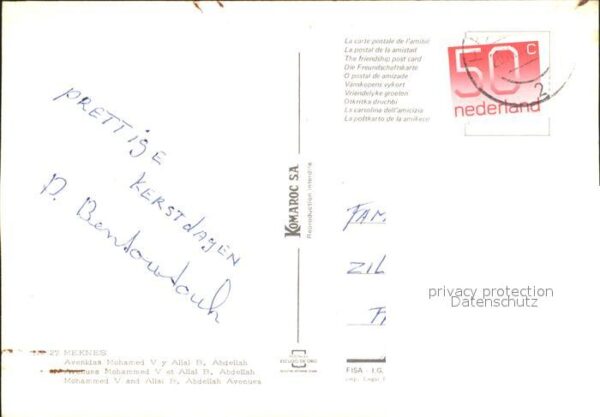 La carte postale de l'amitié
La postal de la amistad
The friendship post card
Die Freundschaftskarte
O postal de amizade
Vänskapens vykort
Vriendelyke groeten
Otkritka druchbi
La cartolina dell'amicizia
La poŝtkarto de la amikeco
50 c
nederland
2
PRETTIGE
KERSTDAGEN
KOMAROC S.A.
Reproduction interdite
FAM
ZIL
privacy protection
Datenschutz
27 MEKNES
Avenidas Mohamed V y Allal B, Abdellah
Avenues Mohammed V et Allal B, Abdellah
Mohammed V and Allal B, Abdellah Avenues
FISA - I.G.